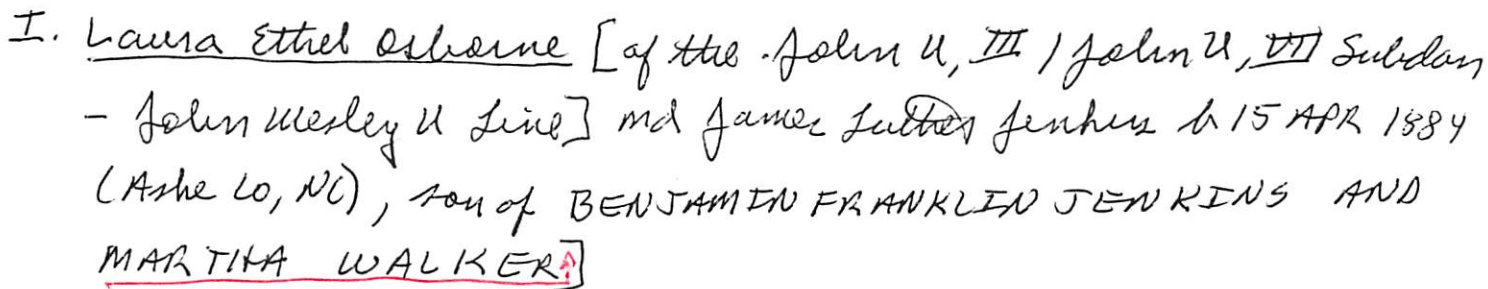 I. Laura Ethel Osborne [of the John U, III / John U, VII Subdan
- John Wesley U Line] md James Luther Jenkins b 15 APR 1884
(Ashe Co, NC), son of BENJAMIN FRANKLIN JENKINS AND
MARTHA WALKER]